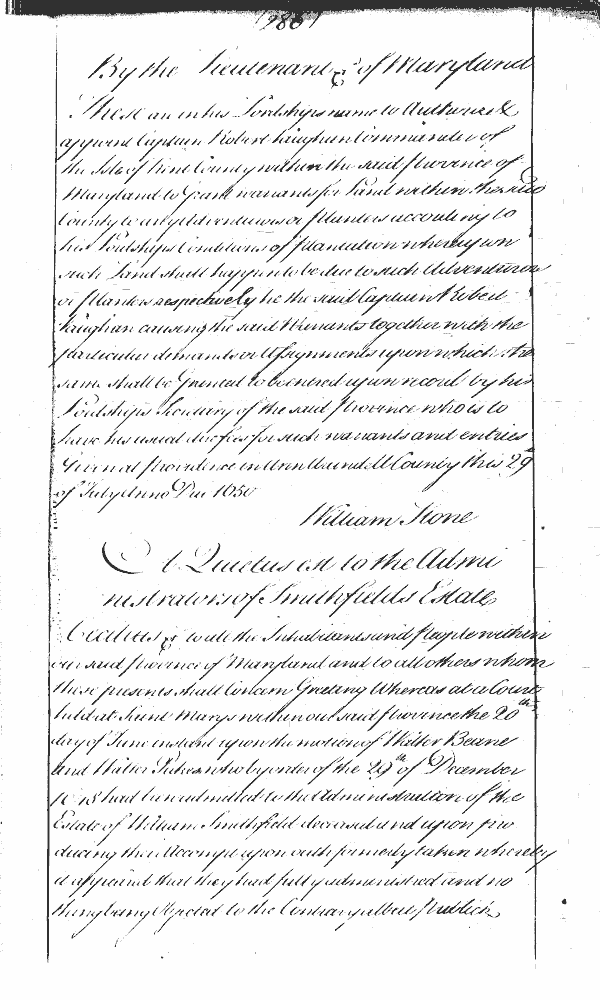 (286)
By the Lieutenant &c of Maryland
These are in his Lordships name to Authorize &
appoint Captain Robert Vaughan Commander of
the Isle of Kent County within the said Province of
Maryland to Grant warrants for Land within the said
County to any Adventurers or Planters according to
his Lordships Conditions of Plantation whereupon
such Land shall happen to be due to such Adventurers
or Planters respectively he the said Captain Robert
Vaughan causing the said Warrants together with the
particular demands or Assignments upon which the
same shall be Granted to be entred upon record by his
Lordships Secretary of the said Province who is to
have his usual fees for such warrants and entries
Given at Providence in Ann Arundell County this 29th
of July Anno Dni 1650
William Stone
A Quietus est to the Admi
nistrators of Smithfields Estate
Cecilius &c to all the Inhabitants and People within
our said Province of Maryland and to all others whom
these presents shall Concern Greeting Whereas at a Court
held at Saint Marys within our said Province the 20th
day of June instant upon the motion of Walter Beane
and Walter who by order of the 29th of December
1648 had been admitted to the Administration of the
Estate of William Smithfield deceased and upon pro
ducing their Accompt upon oath formerly taken whereby
it appeared that they had fully administred and no
thing being Objected to the Contrary albeit Publick